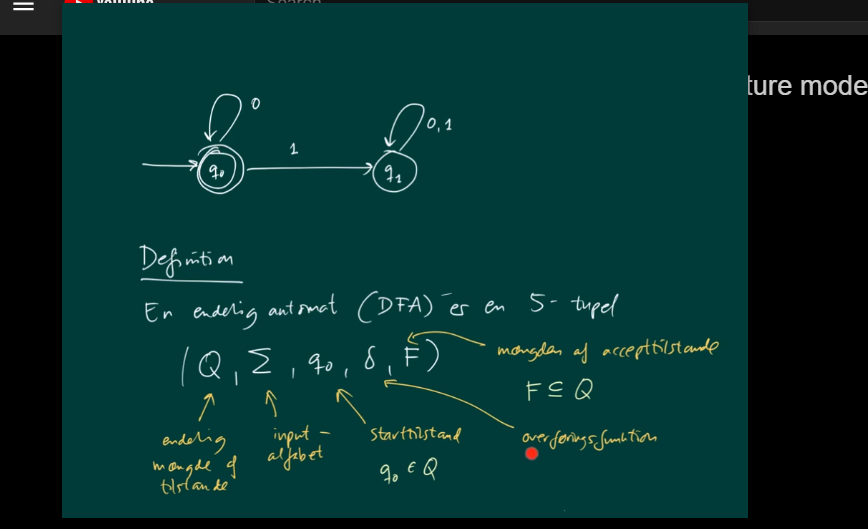 Search
ture mode
0
0,1
1
q₀
q₁
Definition
En endelig automat (DFA) er en 5-tupel
(Q, Σ, q₀, δ, F)
mængden af accepttilstande
F ⊆ Q
endelig
mængde af
tilstande
input-
alfabet
starttilstand
q₀ ∈ Q
overføringsfunktion